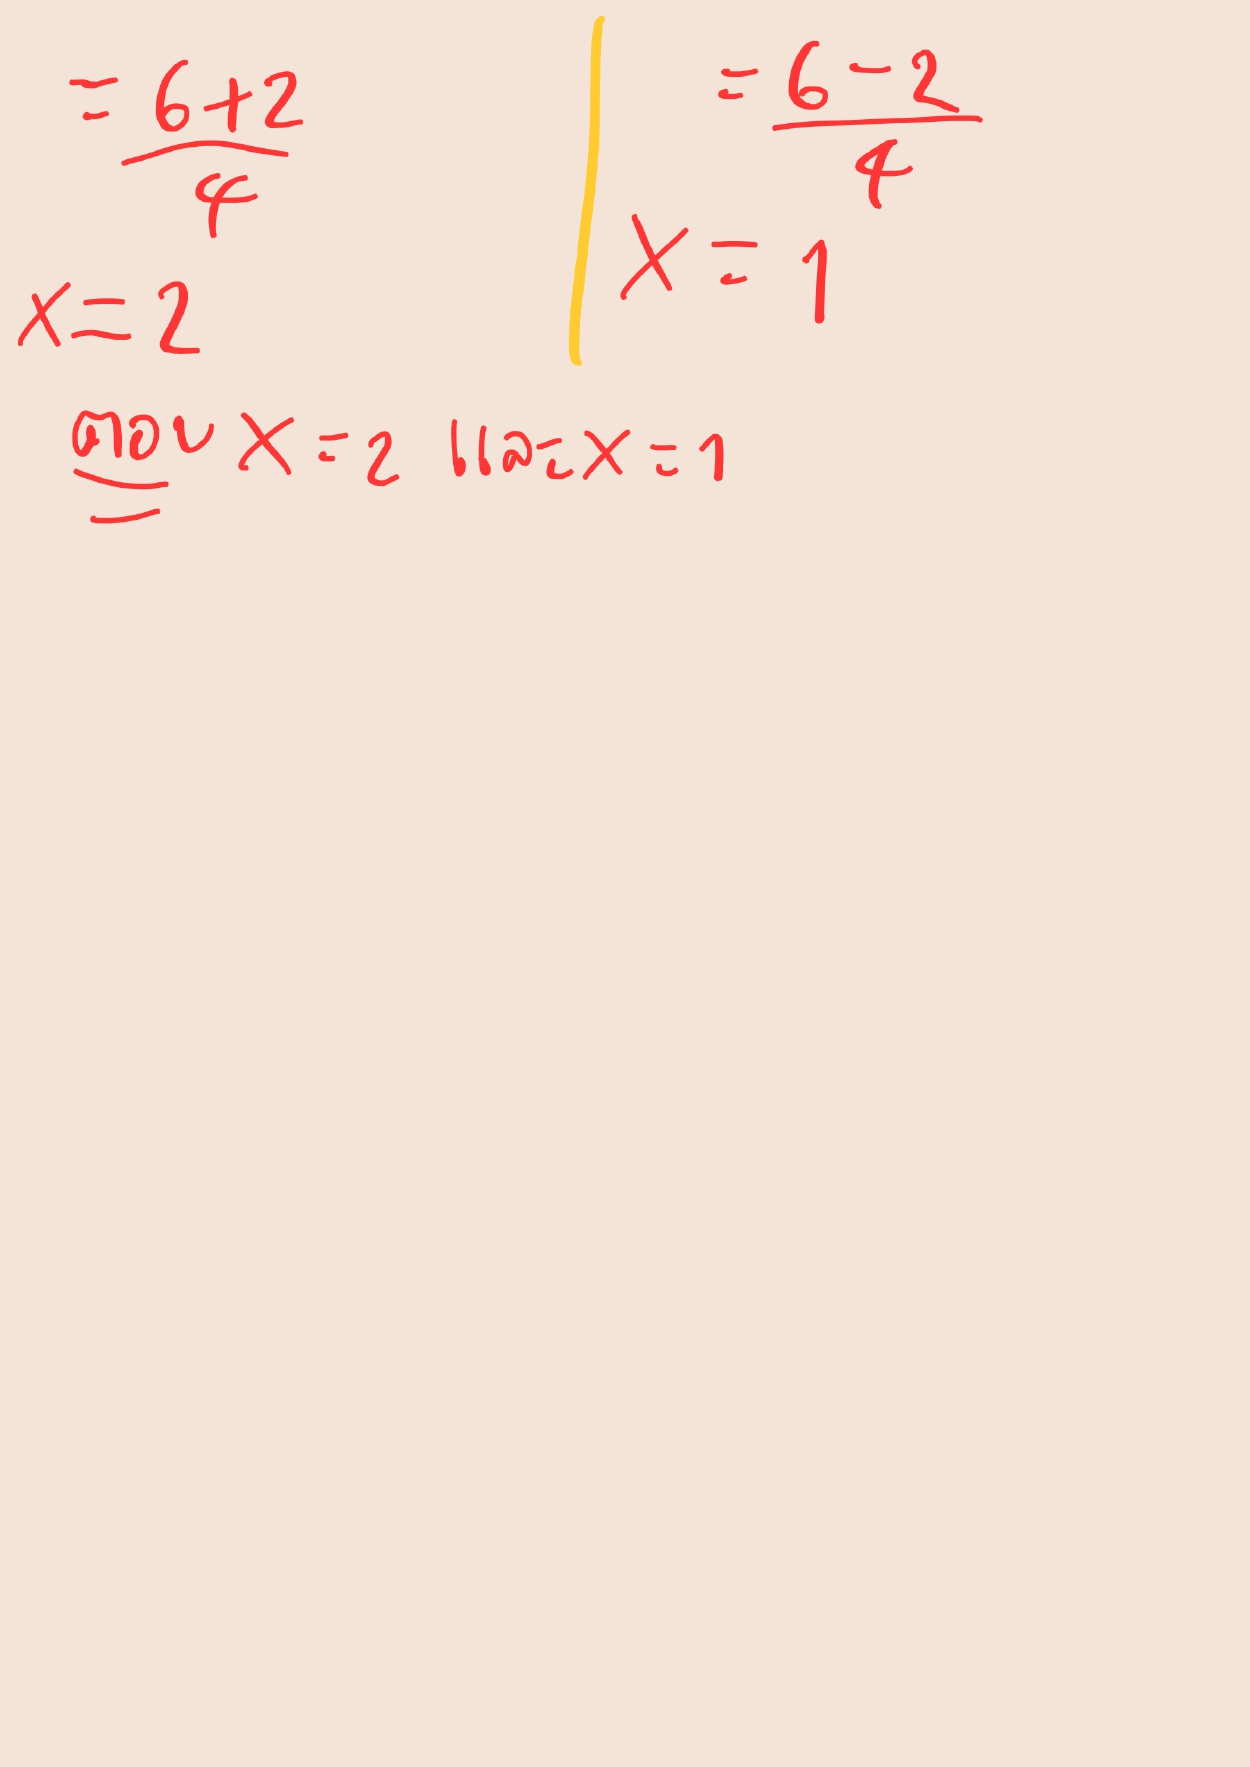 = 6+2
4
x = 2
= 6 - 2
4
x = 1
ตอบ x = 2 และ x = 1